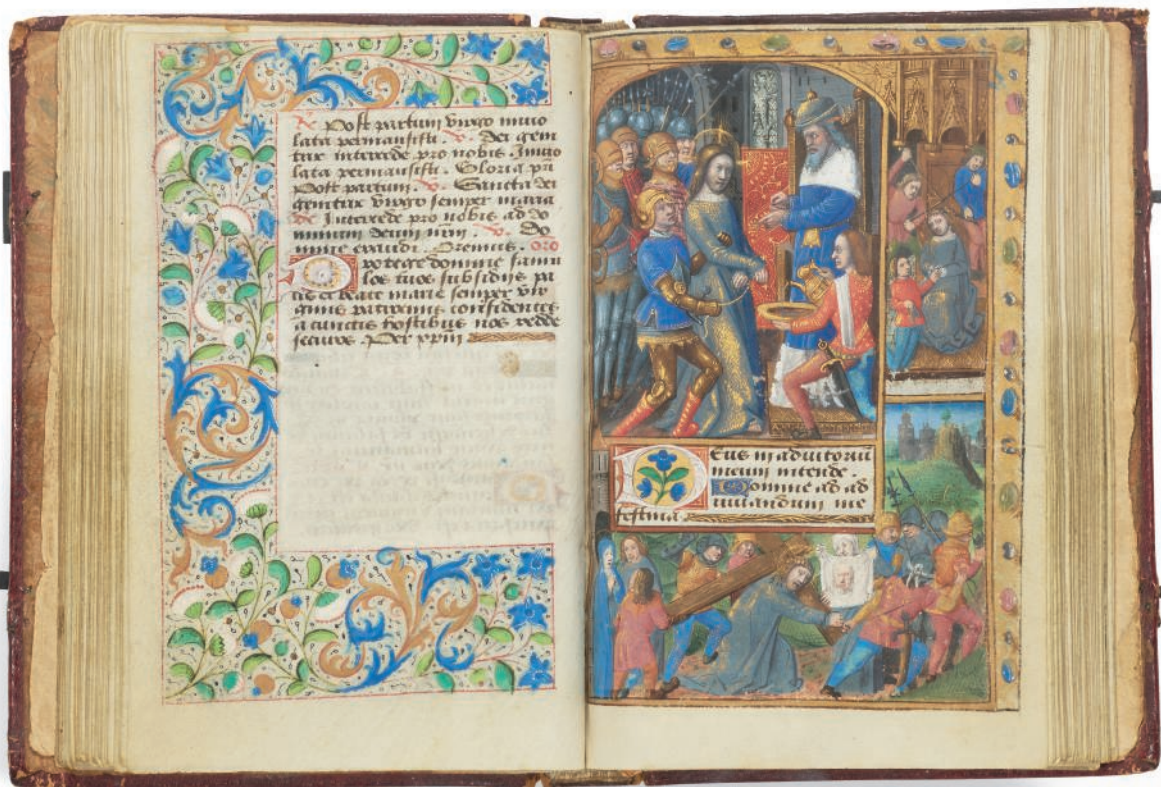 R. Post partum virgo invio
lata permansisti. V. Dei geni
trix intercede pro nobis. Invio
lata permansisti. Gloria pri
Post partum. V. Sancta dei
genitrix virgo semper maria
R. Intercede pro nobis ad do
minum deum nrm. V. Do
mine exaudi. Oremus. oro
Protege domine famu
los tuos subsidiis pa
cis et beate marie semper vir
ginis patrociniis confidentes
a cunctis hostibus nos redde
securos. Per xpm
Deus in adiutoriu
meum intende.
Domine ad ad
iuuandum me
festina.